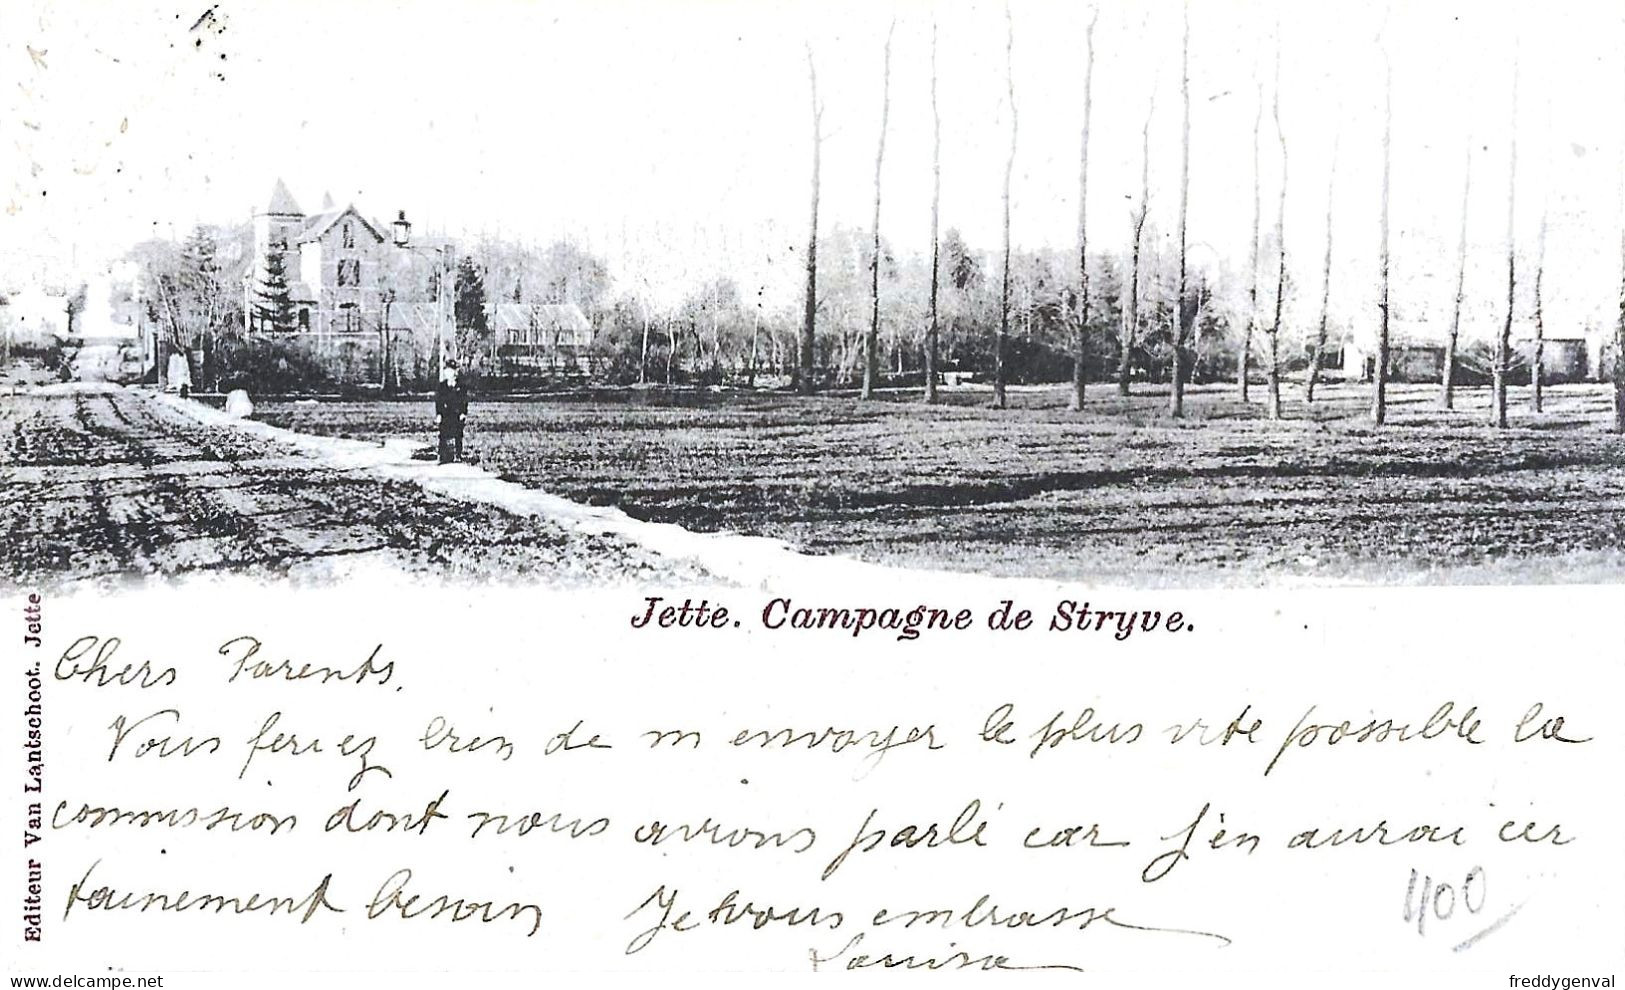 Jette. Campagne de Stryve.
Editeur Van Lantschoot. Jette
Chers Parents,
Vous feriez bien de m'envoyer le plus vite possible la
commission dont nous avions parlé car j'en aurai cer
tainement besoin Je vous embrasse
Louisa
1100
delcampe.net
freddygenval